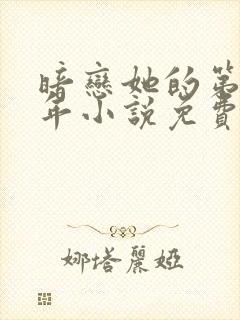 暗戀她的第
年小說免費
娜塔麗婭